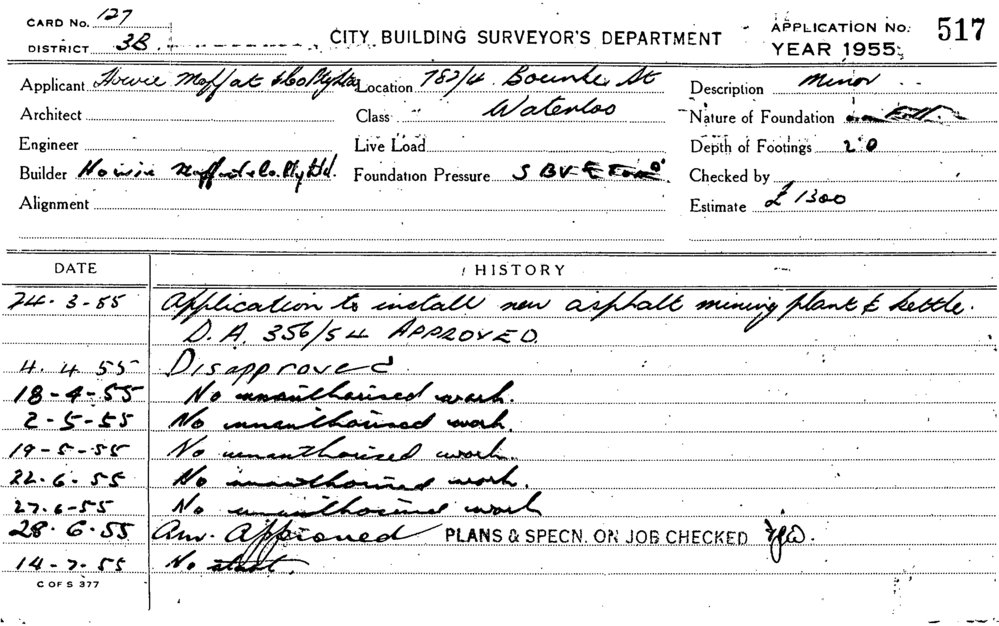 CARD No. 127
DISTRICT 3B
CITY BUILDING SURVEYOR'S DEPARTMENT
APPLICATION No. 517
YEAR 1955
Applicant Howie Moffat & Co Pty Ltd
Location 782/4 Bourke St
Waterloo
Description Minor
Architect
Class
Nature of Foundation
Engineer
Live Load
Depth of Footings 2' 0
Builder Howie Moffat & Co. Pty Ltd.
Foundation Pressure
Checked by
Alignment
Estimate £ 1300
DATE HISTORY
24-3-55 Application to install new asphalt mining plant & kettle.
D.A. 356/54 APPROVED.
4. 4 55 Disapproved
18-4-55 No unauthorised work.
2-5-55 No unauthorised work.
19-5-55 No unauthorised work.
22-6-55 No unauthorised work.
27-6-55 No unauthorised work
28-6-55 Am. Approved PLANS & SPECN. ON JOB CHECKED
14-7-55 No start.
C OF S 377